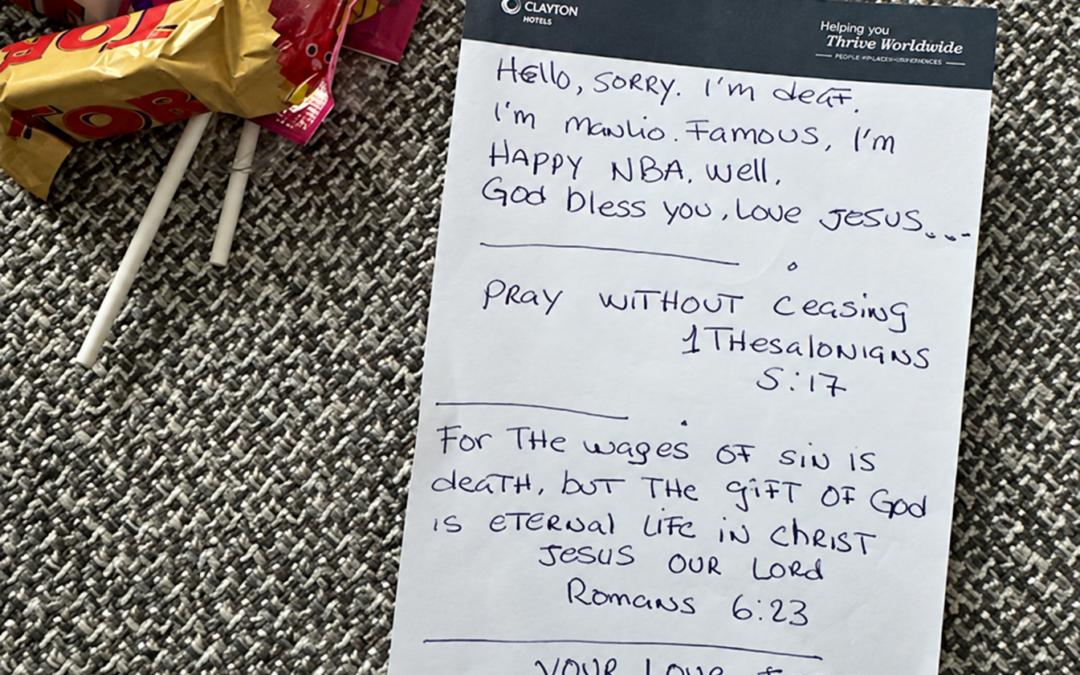 TOR
TOB
CLAYTON
HOTELS
Helping you
Thrive Worldwide
Hello, SORRY. I'm deaf.
I'm Manlio. Famous, I'm
HAPPY NBA. Well,
God bless you, Love JESUS...
PRAY WITHOUT Ceasing
1 THesalonians
5:17
For THe wages OF sin is
deaTH, but THe gift OF God
is eternal Life in CHRIST
Jesus OUR LORd
Romans 6:23
YOUR Love